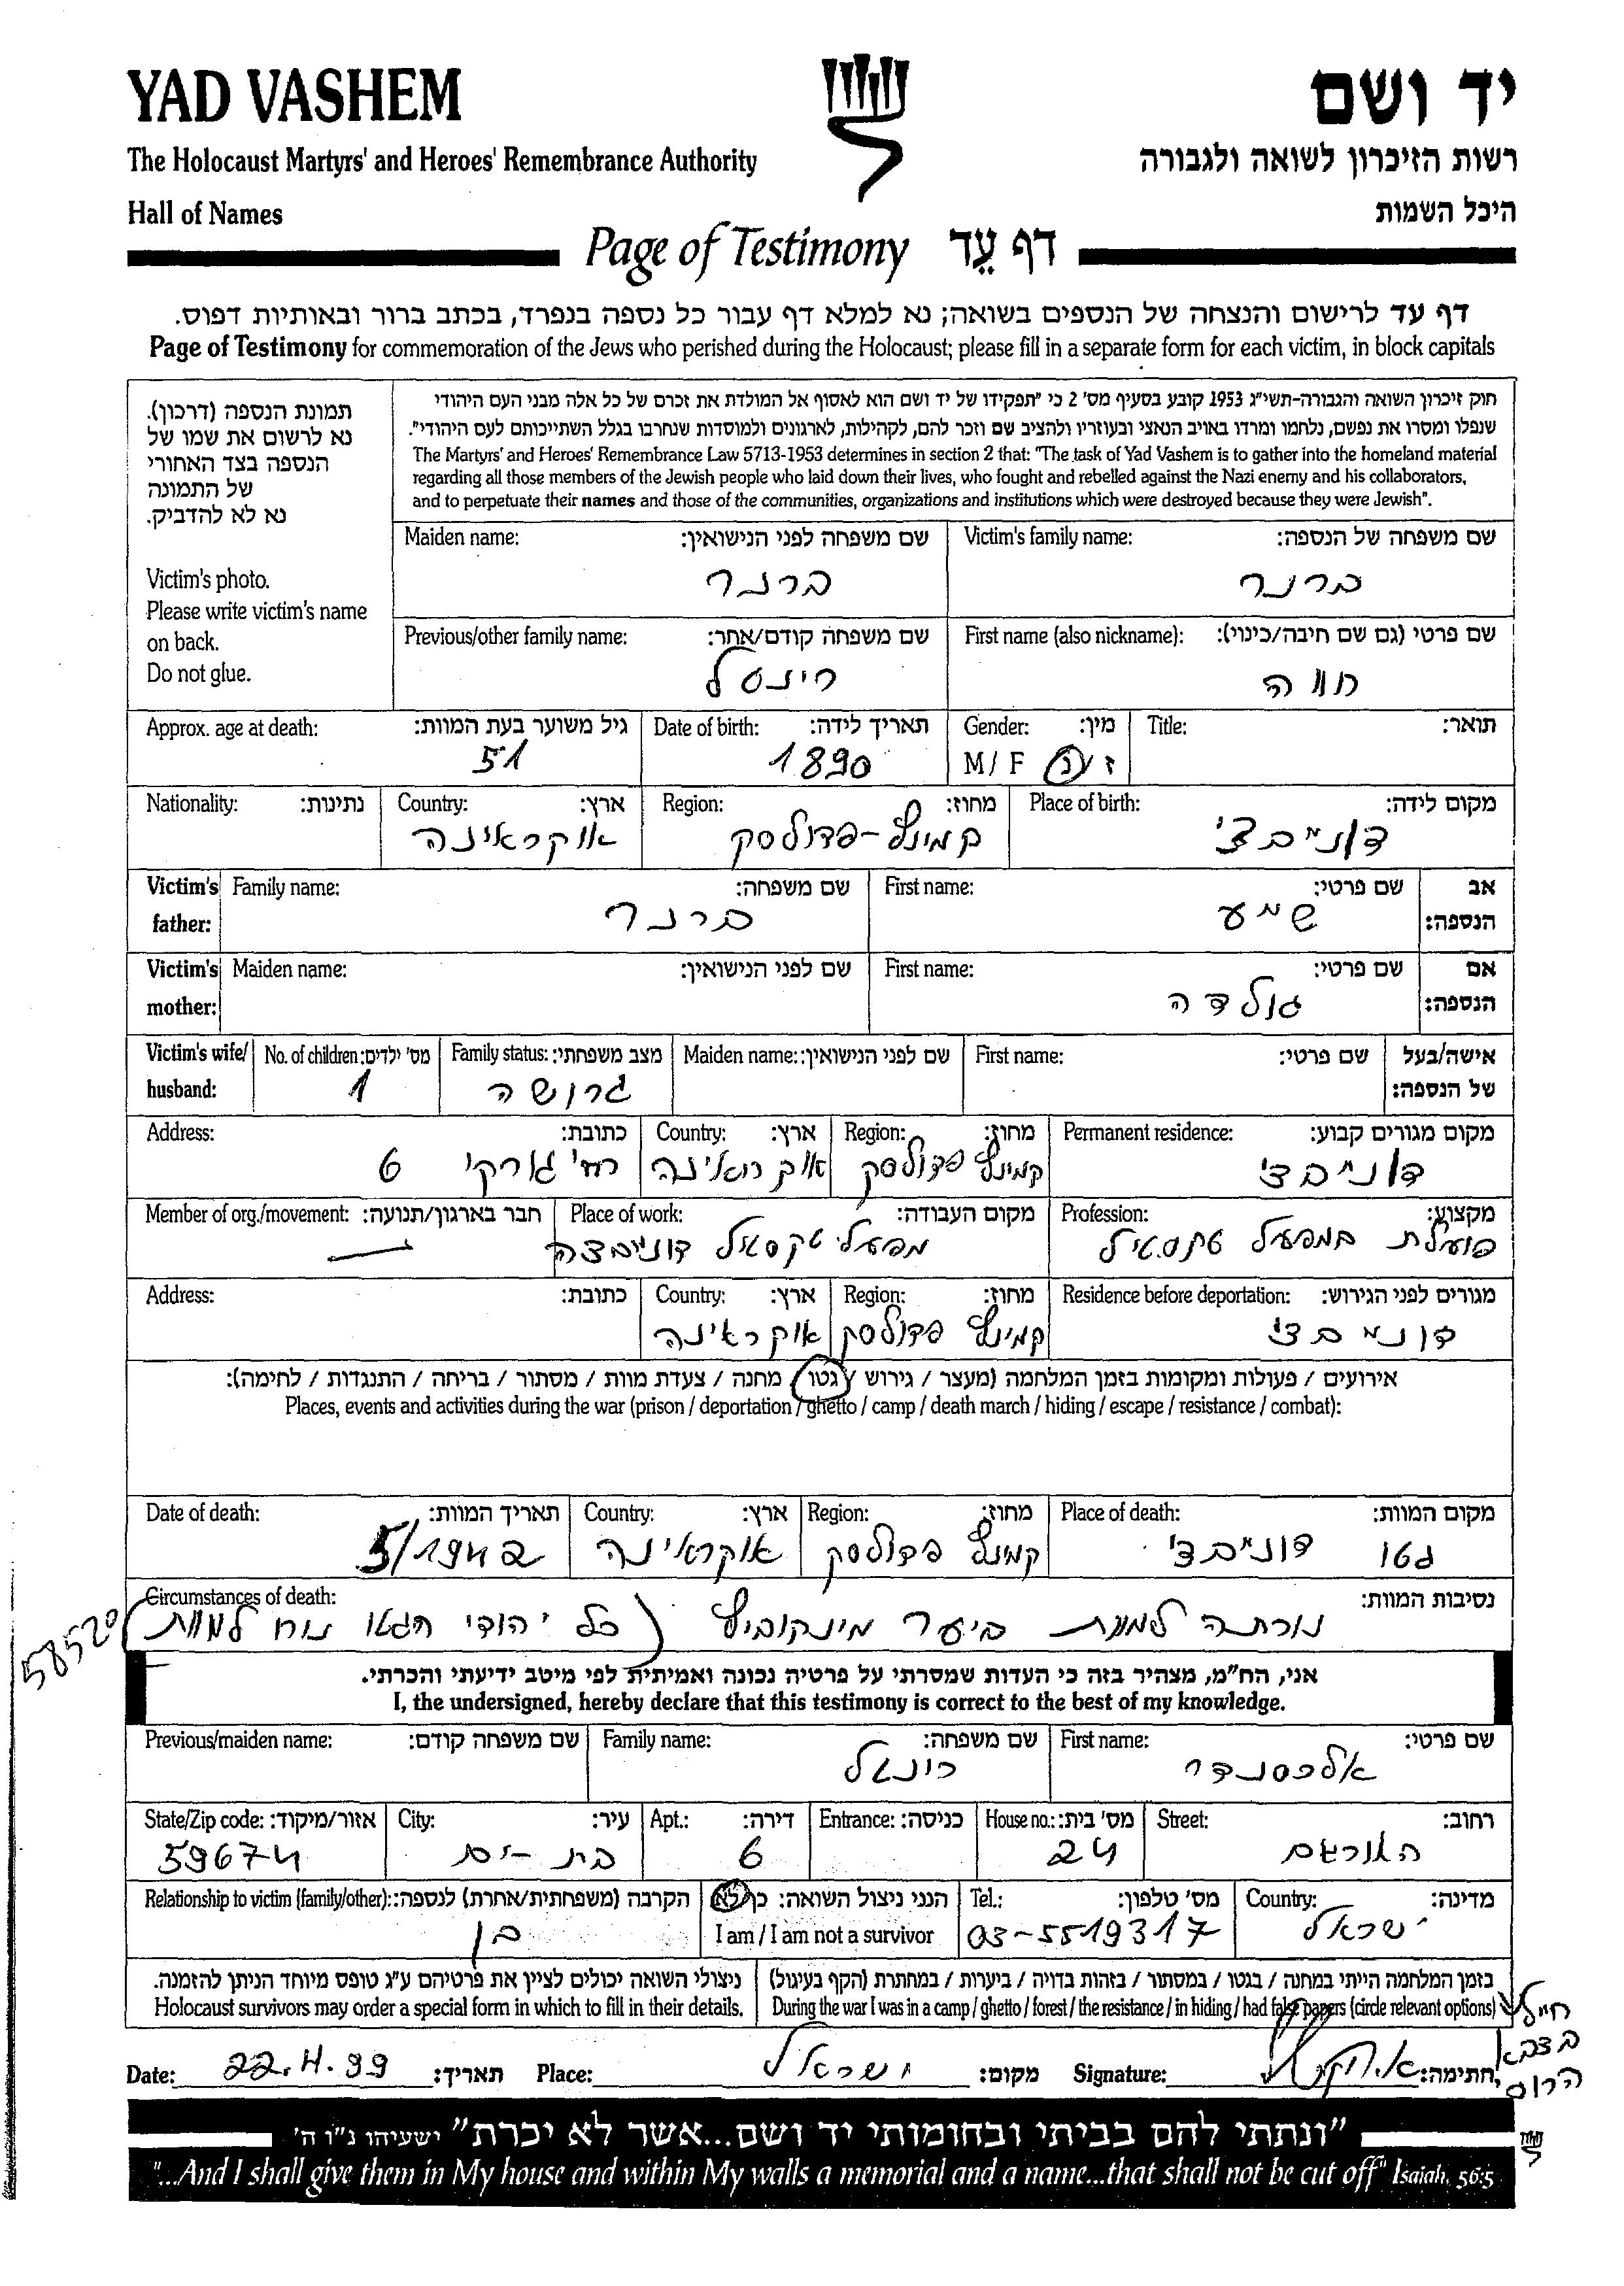 YAD VASHEM
יד ושם
The Holocaust Martyrs' and Heroes' Remembrance Authority
רשות הזיכרון לשואה ולגבורה
Hall of Names
היכל השמות
Page of Testimony דף עֵד
דף עד לרישום והנצחה של הנספים בשואה; נא למלא דף עבור כל נספה בנפרד, בכתב ברור ובאותיות דפוס.
Page of Testimony for commemoration of the Jews who perished during the Holocaust; please fill in a separate form for each victim, in block capitals
תמונת הנספה (דרכון).
נא לרשום את שמו של
הנספה בצד האחורי
של התמונה
נא לא להדביק.
Victim's photo.
Please write victim's name
on back.
Do not glue.
חוק זיכרון השואה והגבורה-תשי"ג 1953 קובע בסעיף מס' 2 כי "תפקידו של יד ושם הוא לאסוף אל המולדת את זכרם של כל אלה מבני העם היהודי
שנפלו ומסרו את נפשם, נלחמו ומרדו באויב הנאצי ובעוזריו ולהציב שם וזכר להם, לקהילות, לארגונים ולמוסדות שנחרבו בגלל השתייכותם לעם היהודי".
The Martyrs' and Heroes' Remembrance Law 5713-1953 determines in section 2 that: "The task of Yad Vashem is to gather into the homeland material
regarding all those members of the Jewish people who laid down their lives, who fought and rebelled against the Nazi enemy and his collaborators,
and to perpetuate their names and those of the communities, organizations and institutions which were destroyed because they were Jewish".
Victim's family name: שם משפחה של הנספה:
ברנר
Maiden name: שם משפחה לפני הנישואין:
ברנר
First name (also nickname): שם פרטי (גם שם חיבה/כינוי):
חווה
Previous/other family name: שם משפחה קודם/אחר:
רינטל
Title: תואר:
Gender: מין:
M / F ז / נ
Date of birth: תאריך לידה:
1890
Approx. age at death: גיל משוער בעת המוות:
51
Place of birth: מקום לידה:
דונייבצי
Region: מחוז:
קמינץ-פדולסק
Country: ארץ:
אוקראינה
Nationality: נתינות:
Victim's father: אב הנספה:
First name: שם פרטי:
Family name: שם משפחה:
ברנר
Victim's mother: אם הנספה:
First name: שם פרטי:
גולדה
Maiden name: שם לפני הנישואין:
Victim's wife/ husband: אישה/בעל של הנספה:
First name: שם פרטי:
Maiden name: שם לפני הנישואין:
Family status: מצב משפחתי:
גרושה
No. of children: מס' ילדים:
1
Permanent residence: מקום מגורים קבוע:
דונייבצי
Region: מחוז:
קמינץ פדולסק
Country: ארץ:
אוקראינה
Address: כתובת:
רח' גורקי 6
Profession: מקצוע:
פועלת במפעל טקסטיל
Place of work: מקום העבודה:
מפעל טקסטיל דונייבצה
Member of org./movement: חבר בארגון/תנועה:
Residence before deportation: מגורים לפני הגירוש:
דונייבצי
Region: מחוז:
קמינץ פדולסק
Country: ארץ:
אוקראינה
Address: כתובת:
אירועים / פעולות ומקומות בזמן המלחמה (מעצר / גירוש / גטו / מחנה / צעדת מוות / מסתור / בריחה / התנגדות / לחימה):
Places, events and activities during the war (prison / deportation / ghetto / camp / death march / hiding / escape / resistance / combat):
Place of death: מקום המוות:
גטו דונייבצי
Region: מחוז:
קמינץ פדולסק
Country: ארץ:
אוקראינה
Date of death: תאריך המוות:
5/1942
Circumstances of death: נסיבות המוות:
נורתה למוות ביער מינקוביץ (כל יהודי הגטו נורו למוות)
58520
אני, הח"מ, מצהיר בזה כי העדות שמסרתי על פרטיה נכונה ואמיתית לפי מיטב ידיעתי והכרתי.
I, the undersigned, hereby declare that this testimony is correct to the best of my knowledge.
First name: שם פרטי:
אלכסנדר
Family name: שם משפחה:
רונטל
Previous/maiden name: שם משפחה קודם:
Street: רחוב:
House no.: מס' בית:
24
Entrance: כניסה:
Apt.: דירה:
6
City: עיר:
בת-ים
State/Zip code: אזור/מיקוד:
59674
Country: מדינה:
ישראל
Tel.: מס' טלפון:
03-5519317
הנני ניצול השואה: כן/לא
I am / I am not a survivor
Relationship to victim (family/other): הקרבה (משפחתית/אחרת) לנספה:
בן
בזמן המלחמה הייתי במחנה / בגטו / במסתור / בזהות בדויה / ביערות / במחתרת (הקף בעיגול)
During the war I was in a camp / ghetto / forest / the resistance / in hiding / had false papers (circle relevant options)
חייל
בצבא
ניצולי השואה יכולים לציין את פרטיהם ע"ג טופס מיוחד הניתן להזמנה.
Holocaust survivors may order a special form in which to fill in their details.
Date: 22.4.99 תאריך: Place: ישראל מקום: Signature: חתימה:
"ונתתי להם בביתי ובחומותי יד ושם...אשר לא יכרת" ישעיהו נ"ו ה'
"...And I shall give them in My house and within My walls a memorial and a name...that shall not be cut off" Isaiah, 56:5